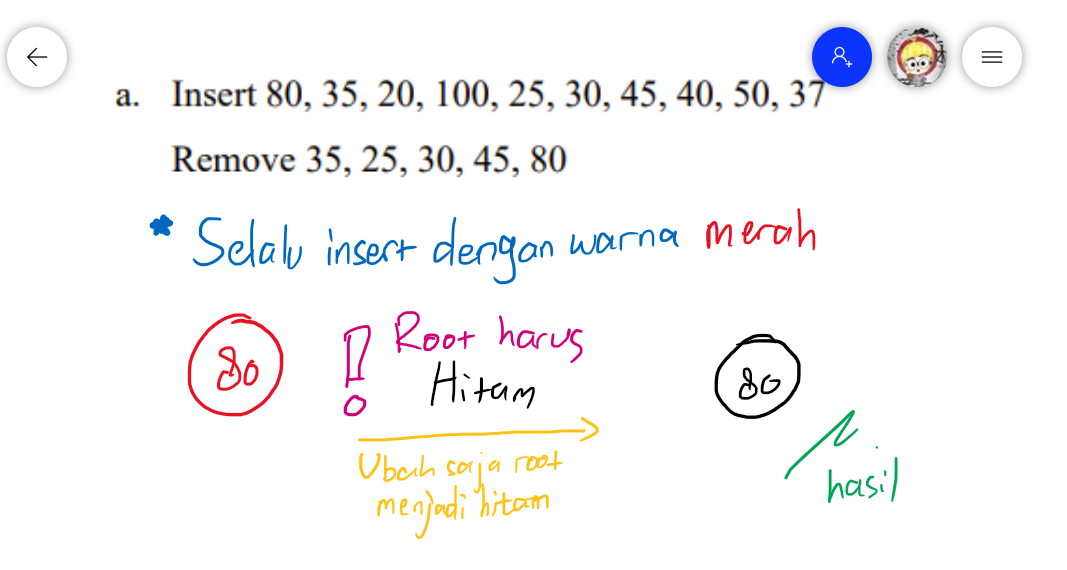 a. Insert 80, 35, 20, 100, 25, 30, 45, 40, 50, 37
Remove 35, 25, 30, 45, 80
* Selalu insert dengan warna merah
80
! Root harus
Hitam
80
Ubah saja root
menjadi hitam
hasil